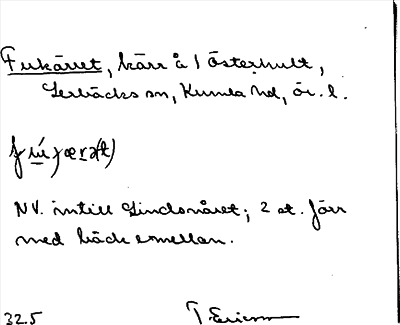 Fukärret, kärr å 1 Österhult,
Lerbäcks sn, Kumla hd, ör. l.
NV. intill Lindsnäret; 2 st. förr
med bäck emellan.
32.5 T. Ericsson